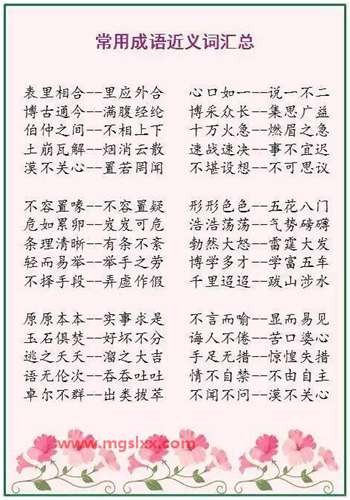 常用成语近义词汇总
表里相合--里应外合 心口如一--说一不二
博古通今--满腹经纶 博采众长--集思广益
伯仲之间--不相上下 十万火急--燃眉之急
土崩瓦解--烟消云散 速战速决--事不宜迟
漠不关心--置若罔闻 不堪设想--不可思议
不容置喙--不容置疑 形形色色--五花八门
危如累卵--发发可危 浩浩荡荡--气势磅礴
条理清晰--有条不紊 勃然大怒--雷霆大发
轻而易举--举手之劳 博学多才--学富五车
不择手段--弄虚作假 千里迢迢--跋山涉水
原原本本--实事求是 不言而喻--显而易见
玉石俱焚--好坏不分 诲人不倦--苦口婆心
逃之夭夭--溜之大吉 手足无措--惊惶失措
语无伦次--吞吞吐吐 情不自禁--不由自主
卓尔不群--出类拔萃 不闻不问--漠不关心
www.mgslxx.com